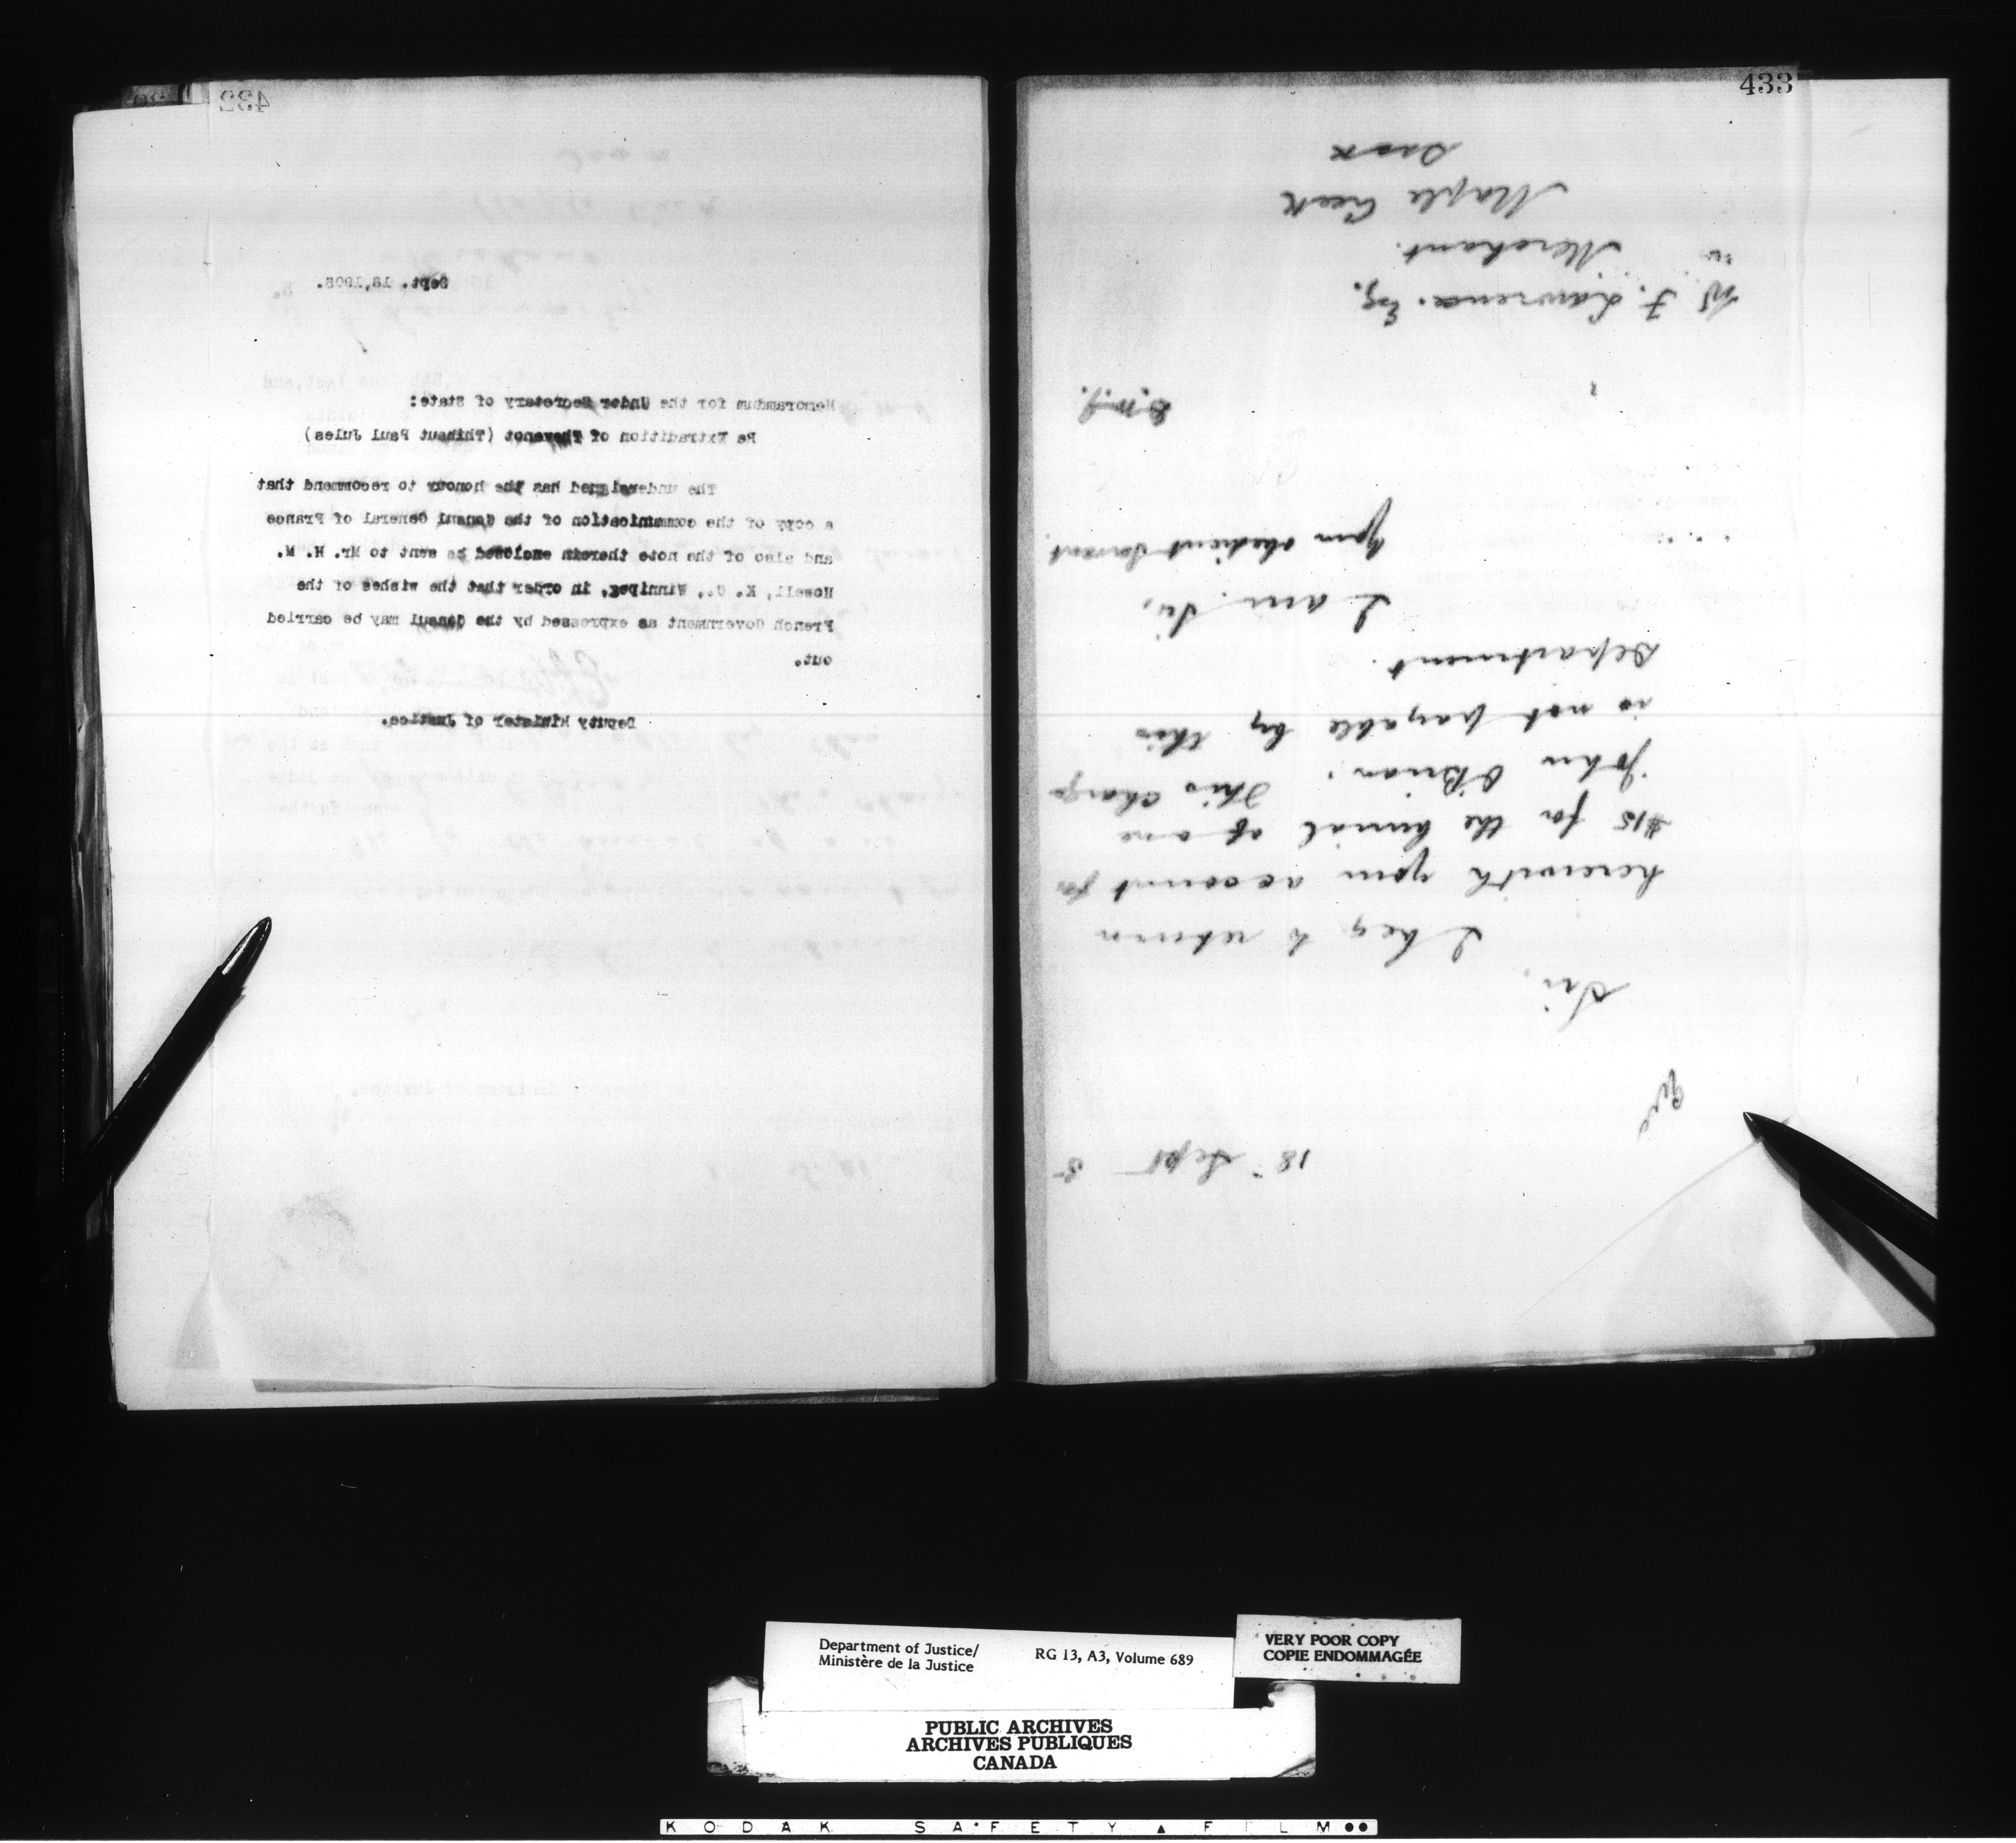 432
Sept. 18, 1905.
Memorandum for the Under Secretary of State:
Re Extradition of Thevenot (Thibaut Paul Jules)
The undersigned has the honour to recommend that
a copy of the communication of the Consul General of France
and also of the note therein enclosed be sent to Mr. H. M.
Howell, K. C., Winnipeg, in order that the wishes of the
French Government as expressed by the Consul may be carried
out.
Deputy Minister of Justice.
433
18" Sept 5
Sir,
I beg to return
herewith your account for
$15 for the burial of one
John O'Brian. This charge
is not payable by this
Department.
I am, Sir,
Your obedient servant.
W. F. Lawrence. Esq.
Merchant.
Maple Creek
Sask
Department of Justice/
Ministère de la Justice
RG 13, A3, Volume 689
VERY POOR COPY
COPIE ENDOMMAGÉE
PUBLIC ARCHIVES
ARCHIVES PUBLIQUES
CANADA
KODAK SAFETY FILM